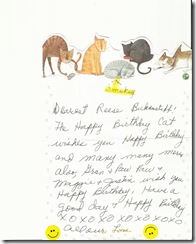 Smokey
Dearest Reese
The Happy Birthday Cat
wishes you Happy Birthday
and many many more
also, Gran & Paw Paw &
wish you
Happy Birthday. Have a
Good day & Happy Birthday
XOXOXOXOXOXOXO
all our Love